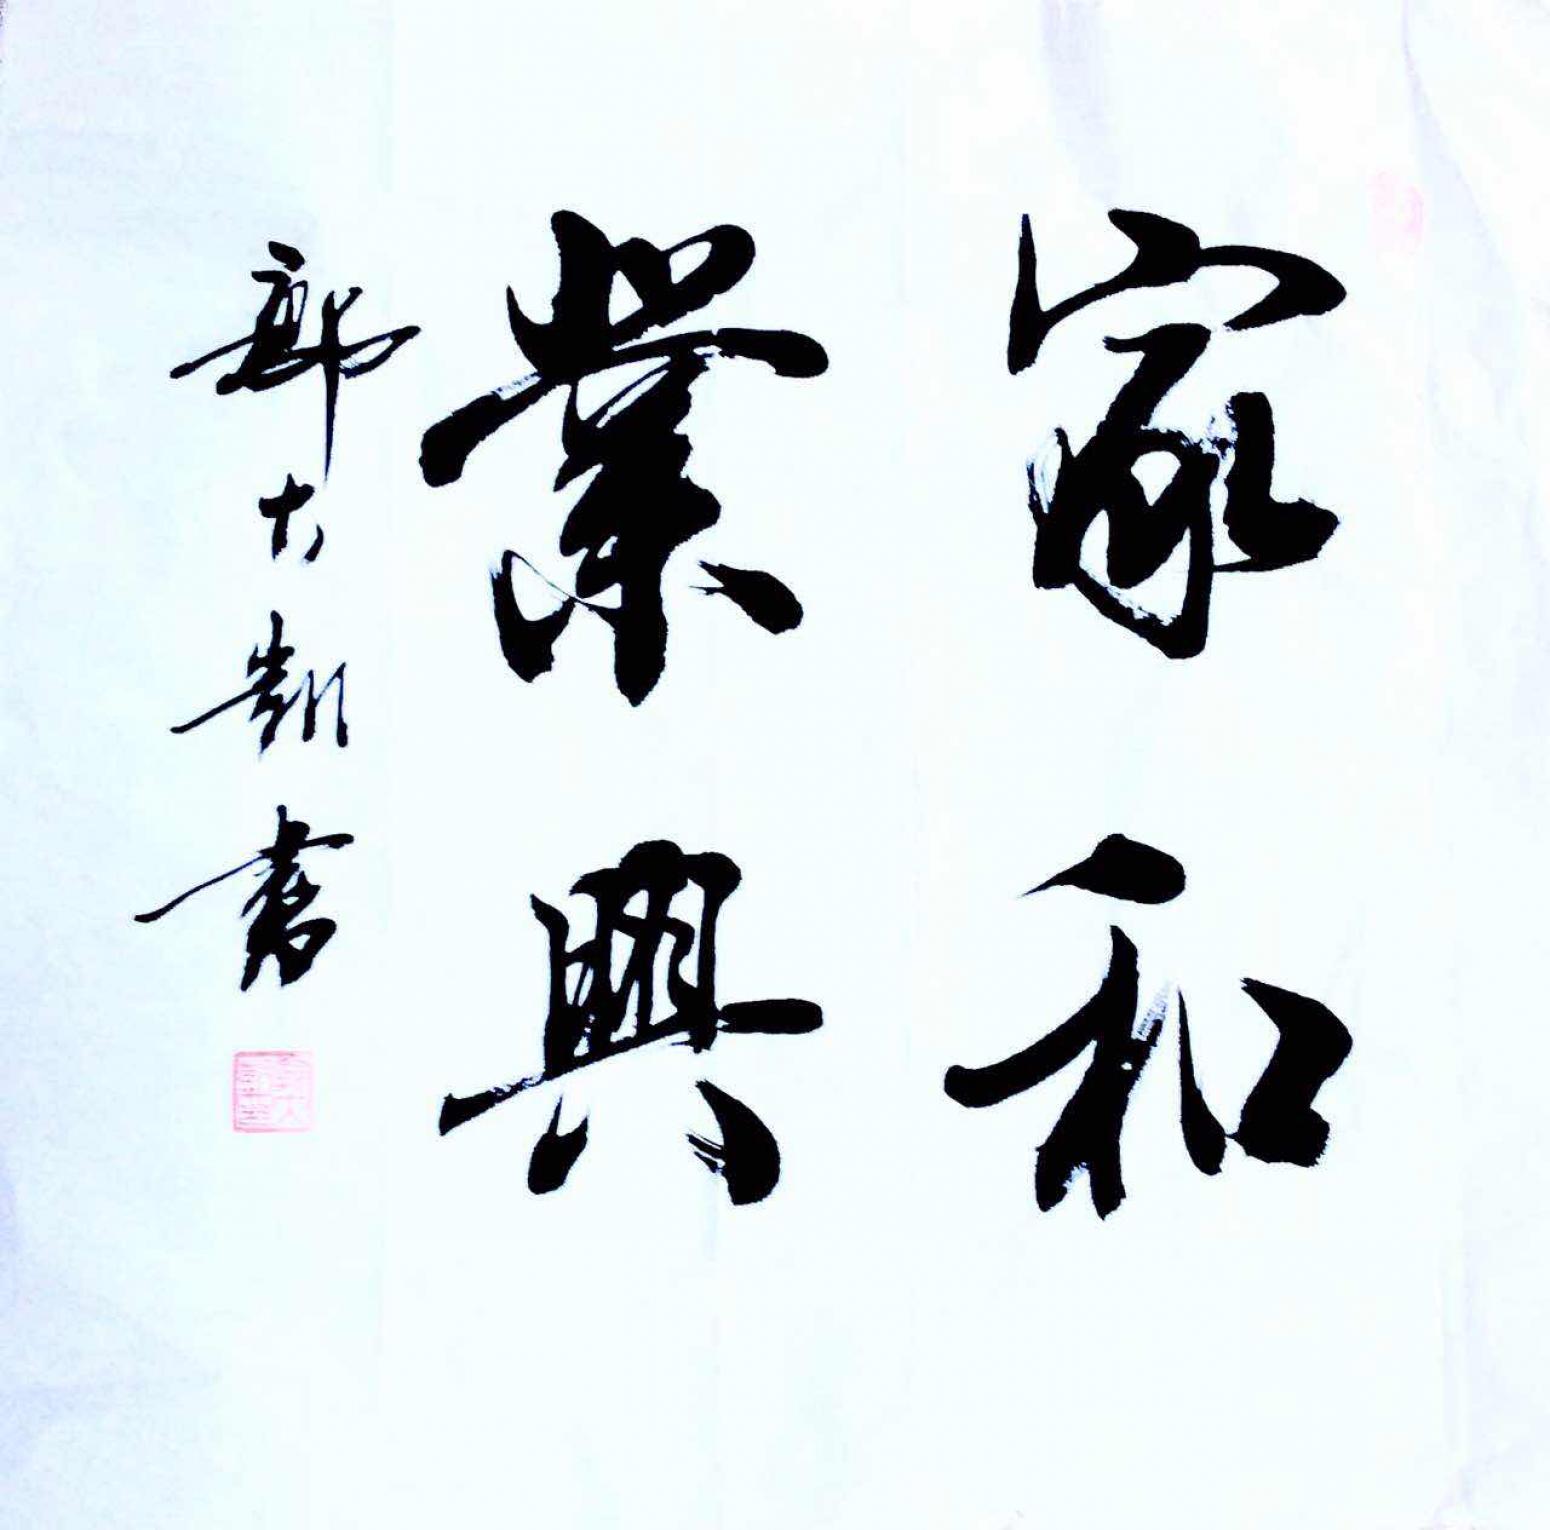 家和
業興
郭大凱書